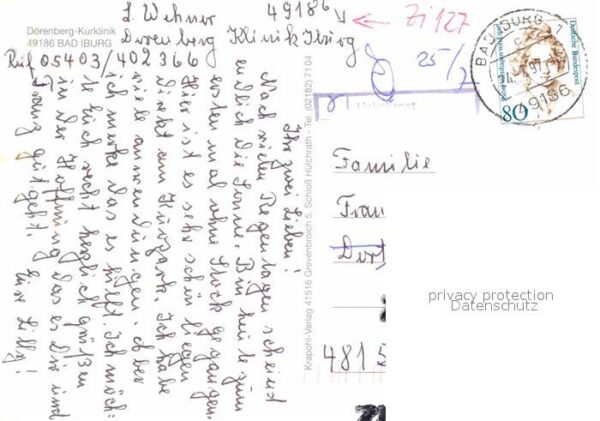 L. Wehner 49186
Dörenberg Klinik Iburg
Zi 127
Dörenberg-Kurklinik
49186 BAD IBURG
Ruf 05403/402366
25/7
Ihr zwei Lieben!
Nach vielen Regentagen scheint
endlich die Sonne. Bin heute zum
ersten mal ohne Stock gegangen.
Hier ist es sehr schön liegen
direkt am Kurpark. Ich habe
viele anwendungen, aber
ich merke das es hilft. Ich möch=
te Euch recht herzlich grüßen
in der Hoffnung das es Dir und
Franz gut geht. Eure Lilly!
Krapohl-Verlag 41516 Grevenbroich 5, Schloß Hülchrath - Tel. (02182) 71 04
BAD IBURG 1
49186
Deutsche Bundespost
80
Familie
Frau
Dort
4815
privacy protection
Datenschutz